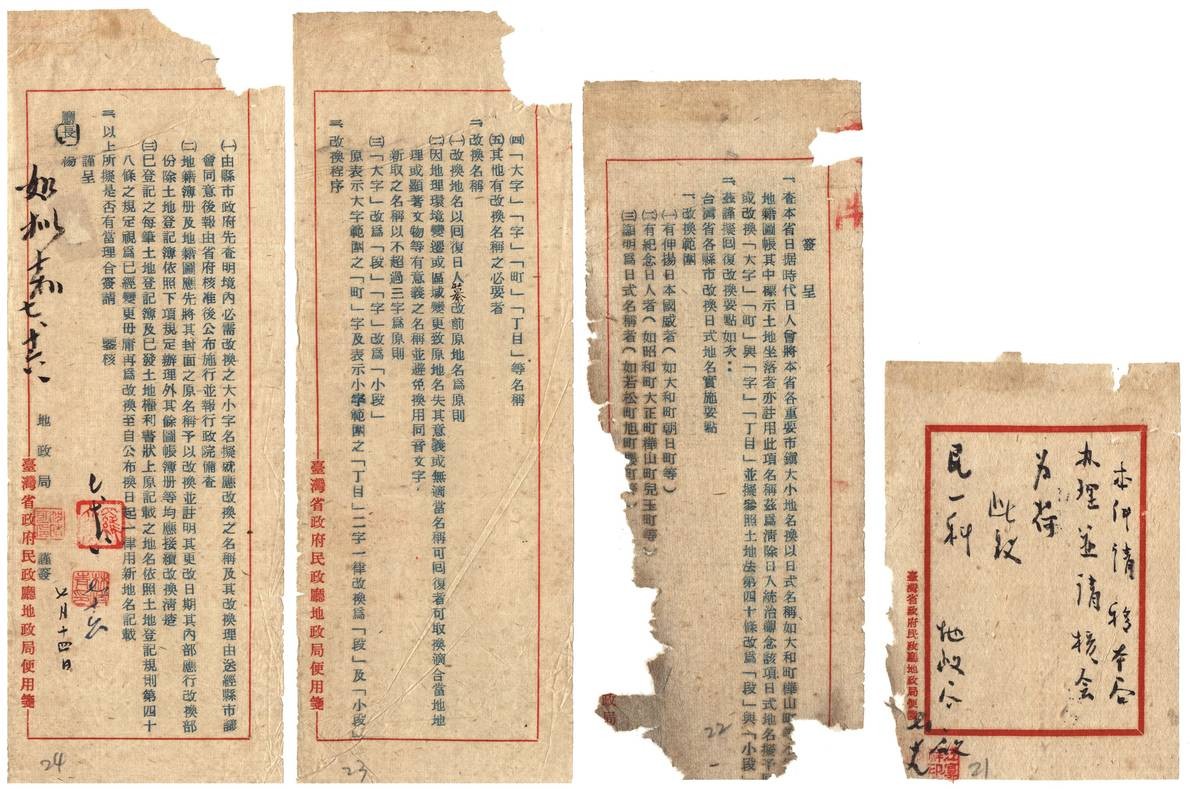 本件請
办理並請核会
为荷
此致
民一科
臺灣省政府民政廳地政局便用箋
21
簽呈
一、查本省日据時代日人曾將本省各重要市鎮大小地名換以日式名稱如大和町樺山町
地籍圖帳其中標示土地坐落者亦註用此項名稱茲為清除日人統治觀念該項日式地名擬予
或改換「大字」「町」與「字」「丁目」並擬參照土地法第四十條改為「段」與「小段
二、茲謹擬回復改換要點如次：
台灣省各縣市改換日式地名實施要點
一、改換範圍
㈠有伸揚日本國威者（如大和町朝日町等）
㈡有紀念日人者（如昭和町大正町樺山町兒玉町等）
㈢顯明為日式名稱者（如若松町旭町
政局
22
㈣「大字」「字」「町」「丁目」等名稱
㈤其他有改換名稱之必要者
二、改換名稱
㈠改換地名以回復日人纂改前原地名為原則
㈡因地理環境變遷或區域變更致原地名失其意義或無適當名稱可回復者可取換適合當地地
理或顯著文物等有意義之名稱並避免換用同音文字
新取之名稱以不超過三字為原則
㈢「大字」改為「段」「字」改為「小段」
原表示大字範圍之「町」字及表示小字範圍之「丁目」二字一律改換為「段」及「小段」
三、改換程序
臺灣省政府民政廳地政局便用箋
23
㈠由縣市政府先查明境內必需改換之大小字名擬就應改換之名稱及其改換理由送經縣市議
會同意後報由省府核准後公布施行並報行政院備查
㈡地籍簿册及地籍圖應先將其封面之原名稱予以改換並註明其更改日期其內部應行改換部
份除土地登記簿依照下項規定辦理外其餘圖帳簿册等均應接續改換清楚
㈢已登記之每筆土地登記簿及已發土地權利書狀上原記載之地名依照土地登記規則第四十
八條之規定視為已經變更毋庸再為改換至自公布換日起一律用新地名記載
三、以上所擬是否有當理合簽請 鑒核
謹呈
廳長 楊
地政局 謹簽
七月十四日
如拟
臺灣省政府民政廳地政局便用箋
24